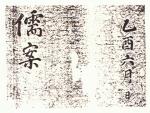 乙酉六月日
儒案